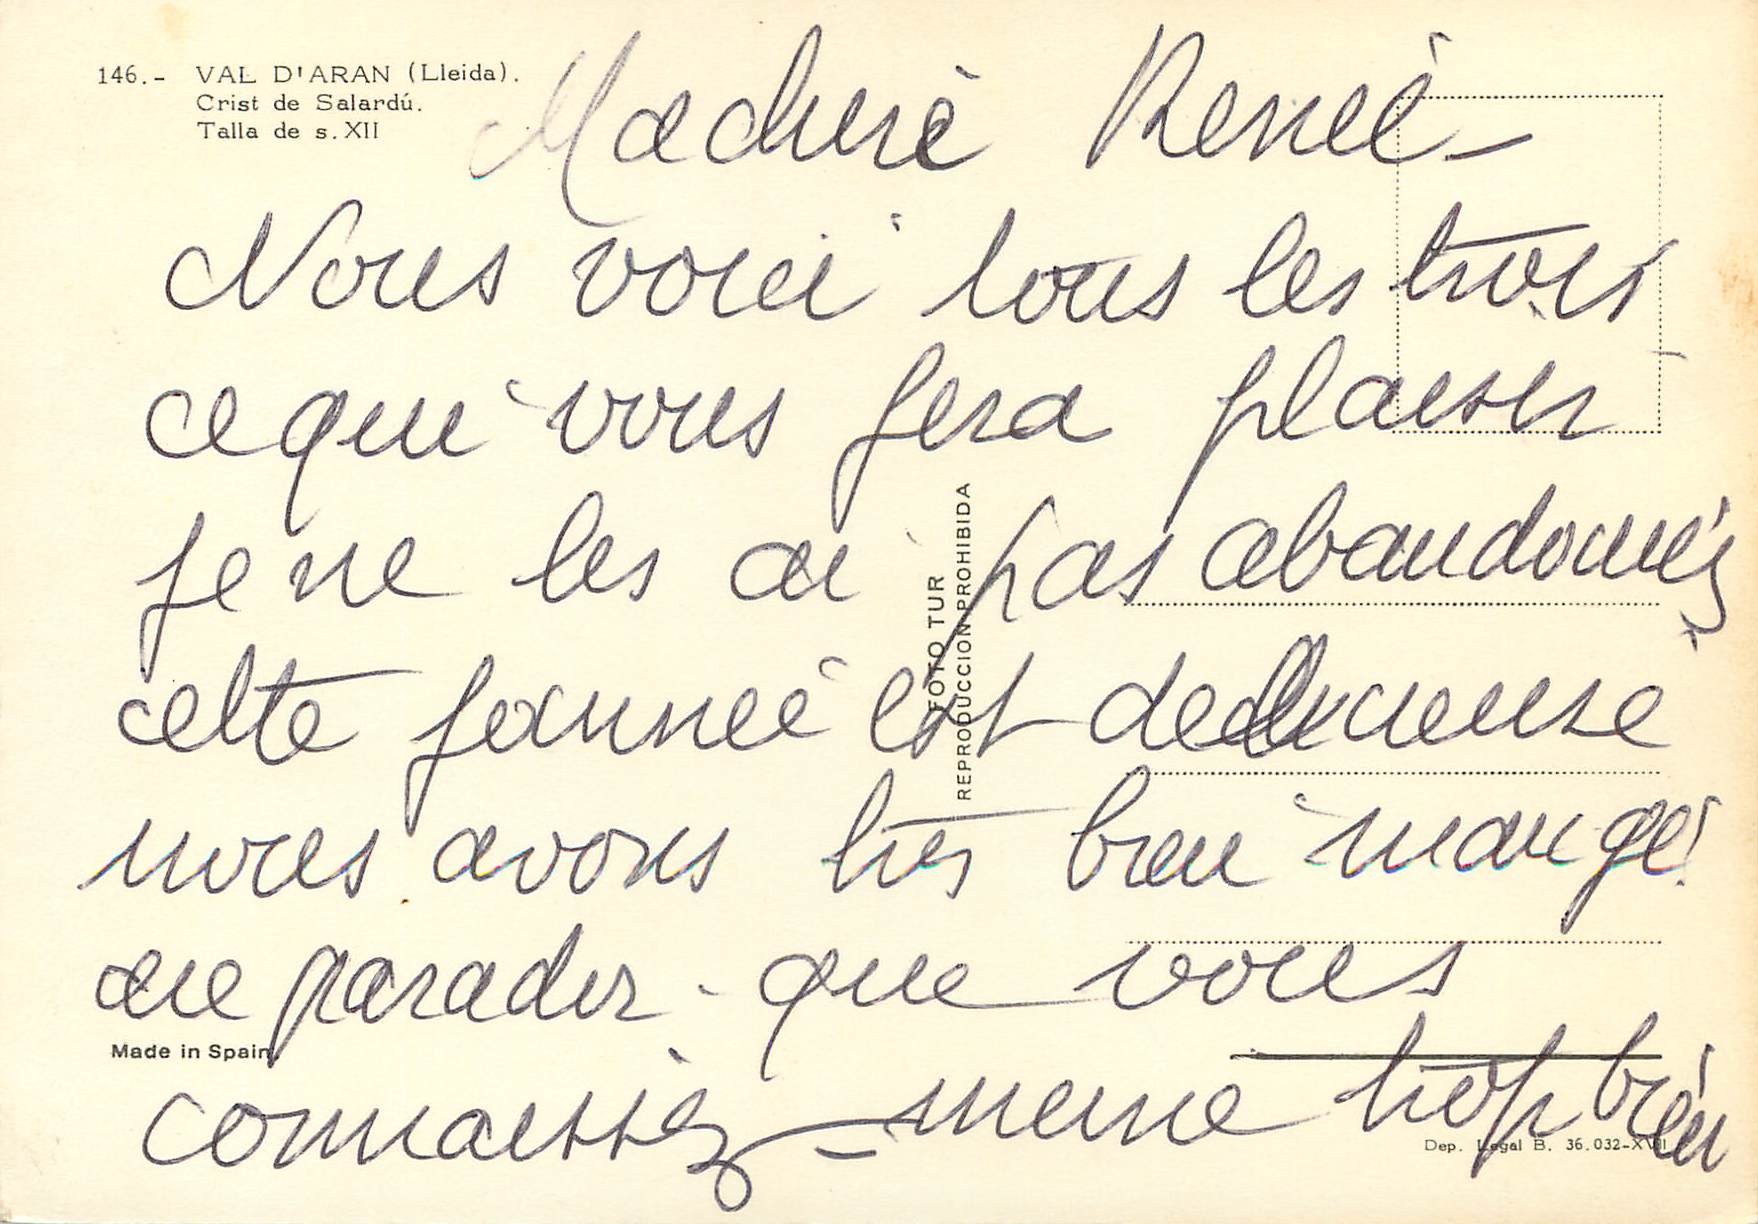 146.- VAL D'ARAN (Lleida).
Crist de Salardú.
Talla de s. XII
Madame Renée -
Nous voici tous les trois
ce qui vous fera plaisir
je ne les ai pas abandonnés
cette journée est délicieuse
nous avons très bien mangé
au parador - que vous
connaissez - meme trop bien
FOTO TUR
REPRODUCCION PROHIBIDA
Made in Spain
Dep. Legal B. 36.032-XVIII